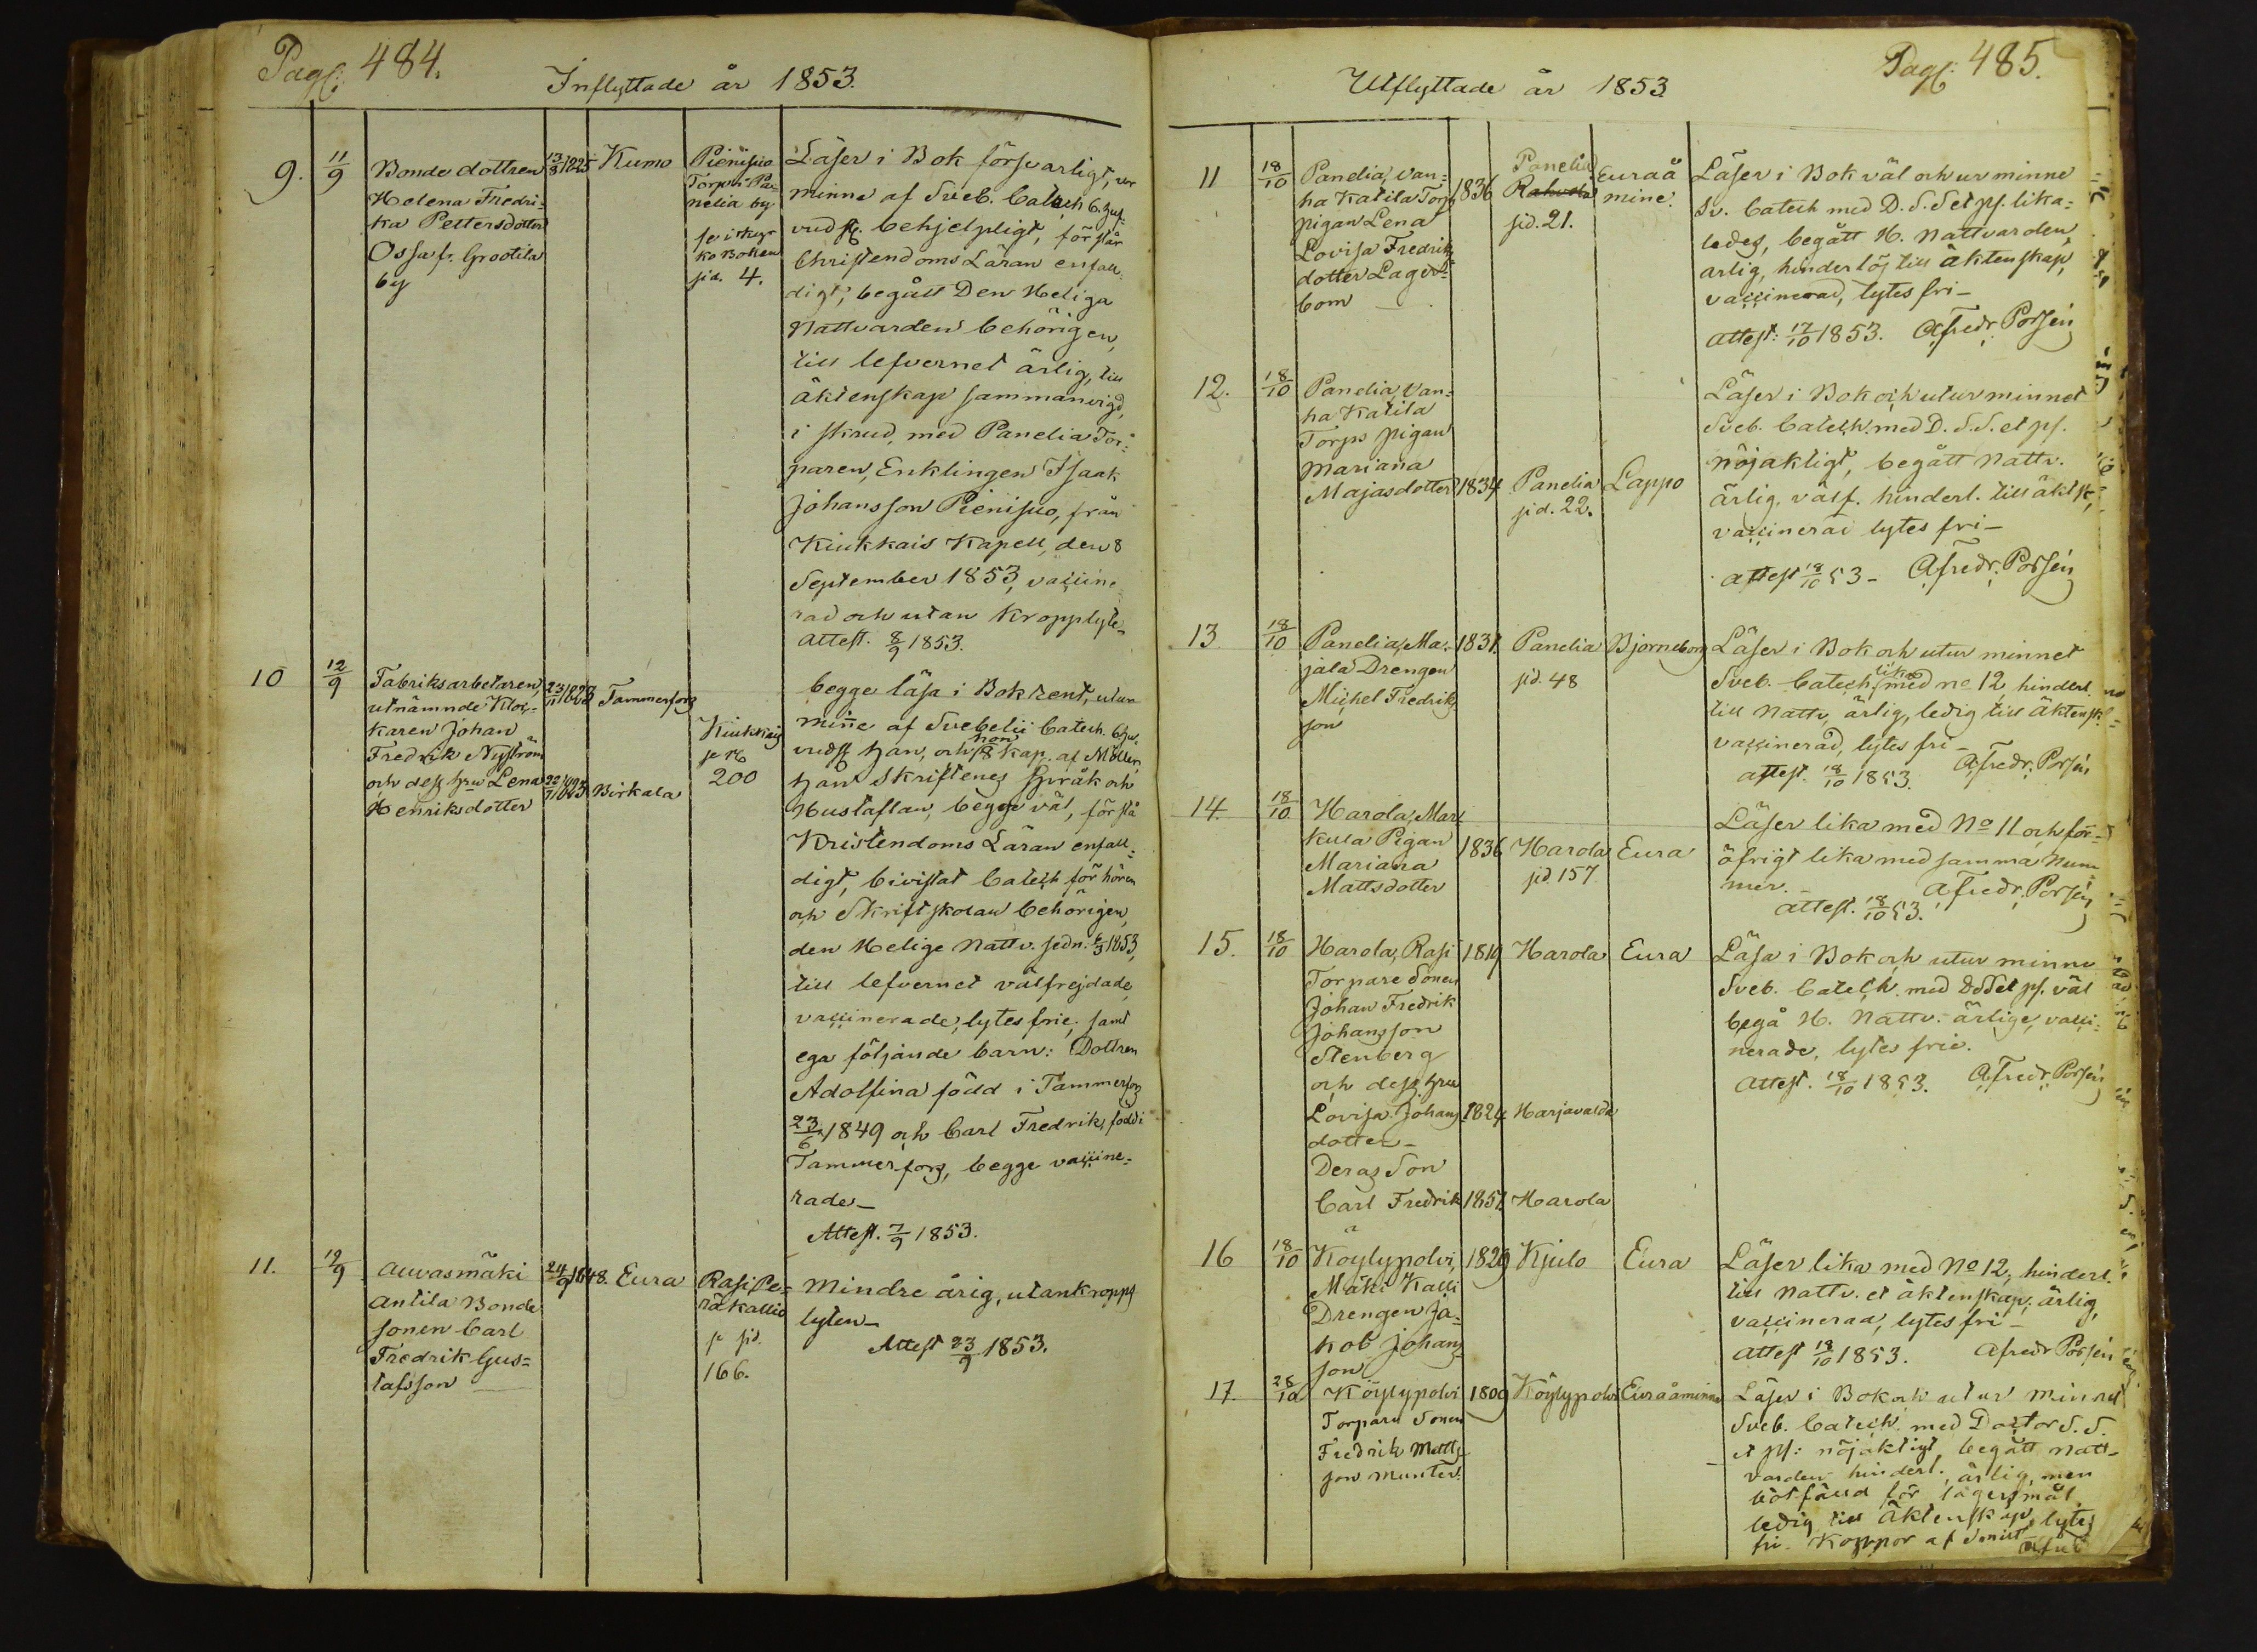 Pag: 484.
Inflyttade år 1853.
9.
11/9
Bonde dottren
Helena Fredri-
ka Pettersdotter
Ossa fr. Grootila
by
13/8 1825
Kumo
Pienisuo
Torp i Pa-
nelia by
se i Kyr
ko Boken
sid. 4.
Läser i Bok försvarligt, ur
minne af Sveb. Catech. 6. huf-
vudst. behjelpligt, förstår
Christendoms Läran enfall-
digt, begått Den Heliga
Nattvarden behörigen,
till lefvernet ärlig, till
äktenskap sammanvigd,
i skrud, med Panelia Tor-
paren, Enklingen Isaak
Johansson Pienisuo, från
Kiukkais Kapell, den 8
September 1853, vaccine-
rad och utan kropplyte.
Attest. 8/9 1853.
10
12/9
Fabriksarbetaren,
utnämnde Kloc-
karen Johan
Fredrik Nyström
och dess hru Lena
Henriksdotter
23/11 1828
22/7 1823
Tammerfors
Birkala
Kiukkais
se
200
begge läsa i Bok rent, utur
minne af Svebelii Catech. 6 hu-
vudst han, och hon 8 kap. af Möller,
han Skriftenes Språk och
Hustaflan, begge väl, förstå
Kristendoms Läran enfall-
digt, bivistat Catech förhören
och Skriftskolan behörigen,
den Helige Nattv. sedn. 6/3 1853,
till lefvernet välfrejdade,
vaccinerade, lytes frie, samt
ega följande barn: Dottren
Adolfina född i Tammerfors
23/6 1849 och Carl Fredrik, född i
Tammerfors, begge vaccine-
rade.
Attest. 7/9 1853.
11.
19/9
Auvasmäki
Antila Bonde
sonen Carl
Fredrik Gus-
tafsson
24/9 1848.
Eura
Rasi Pe-
räkallio
se sid
166.
Mindre årig, utan kropps
lyten
Attest 23/9 1853.
Pag: 485.
Utflyttade år 1853
11
18/10
Panelia, Van-
ha Katila Torp
pigan Lena
Lovisa Fredriks
dotter Lager-
bom
1836
Panelia
Rahvola
sid. 21.
Euraå
mine.
Läser i Bok väl och ur minne
Sv. Catech med D. S. S et ps. lika-
ledes, begått H. Nattvarden,
ärlig, hinderlös till äktenskap,
vaccinerad, lytes fri
attest: 17/10 1853. A Fredr. Porsén
12.
18/10
Panelia, Van-
ha Katila
Torps pigan
Mariana
Majasdotter
1834
Panelia
sid. 22.
Lappo
Läser i Bok och utur minnet
Sveb. Catech. med D. S. S. et ps.
nöjaktigt, begått Nattv.
ärlig, välf. hinderl. till äktsk,
vaccinerad lytes fri
attest 18/10 53 A Fredr. Porsén
13
18/10
Panelia, Ma-
jala Drengen
Michel Fredriks
son
1831.
Panelia
sid. 48
Bjorneborg
Läser i Bok och utur minnet
Sveb. Catech. lika med no 12, hinderl.
till Nattv, ärlig, ledig till äktensk.
vaccinerad, lytes fri
attest. 18/10 1853. A Fredr. Porsén
14
18/10
Harola, Mar-
kula Pigan
Mariana
Mattsdotter
1836
Harola
sid. 157
Eura
Läser lika med No 11, och för
öfrigt lika med samma Num-
mer.
attest. 18/10 53. A Fredr. Porsén
15.
18/10
Harola, Rasi
Torpare Sonen
Johan Fredrik
Johansson
Stenberg
och dess hru
Lovisa Johans
dotter
Deras Son
Carl Fredrik
1819
1824
1851
Harola
Harjavalda
Harola
Eura
Läsa i Bok och utur minne
Sveb. Catech. med DSS et ps. väl
begå H. Nattv. ärlige, vacci-
nerade, lytes frie.
attest. 18/10 1853. A Fredr. Porsén
16
18/10
Köylypolvi,
Mäki Kalli
Drengen Ja-
kob Johans
son
1829
Kjulo
Eura
Läser lika med No 12, hinderl.
till Nattv. et äktenskap, ärlig,
vaccinerad, lytes fri
attest 18/10 1853. A Fredr Porsén
17.
28/10
Köylypolvi
Torpare Sonen
Fredrik Matts
son Munter
1809
Köylypolvi
Euraåminne
Läser i Bok och utur minnet
Sveb. Catech. med Doctor S. S.
et ps: nöjaktigt, begått Natt-
varden hinderl., ärlig, men
bötfälld för lägersmål
ledig till Äktenskap, lytes
fri. Koppor af Smitt